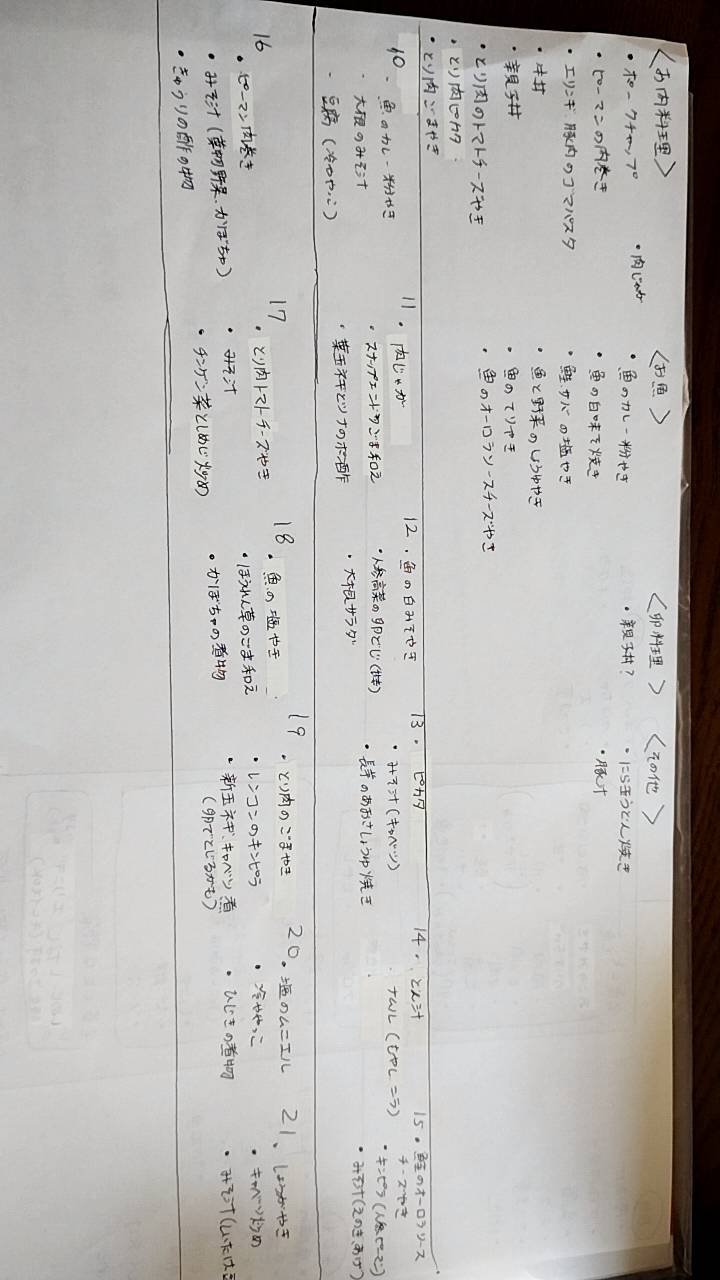 〈お肉料理〉
・ポークチャップ
・肉じゃが
・ピーマンの肉巻き
・エリンギ、豚肉のゴマパスタ
・牛丼
・親子丼
・とり肉のトマトチーズやき
・とり肉ピカタ
・とり肉ごまやき
〈お魚〉
・魚のカレー粉やき
・魚の白味そ焼き
・鮭、サバの塩やき
・魚と野菜のしょうゆやき
・魚のてりやき
・魚のオーロラソースチーズやき
〈卵料理〉
・親子丼?
〈その他〉
・にら玉うどん焼き
・豚汁
10
・魚のカレー粉やき
・大根のみそ汁
・豆腐(冷ややっこ)
11
・肉じゃが
・スナップエンドウのごま和え
・葉玉ネギとツナのポン酢
12
・魚の白みそやき
・人参高菜の卵とじ
・大根サラダ
13
・ピカタ
・みそ汁(キャベツ)
・長芋のあおさしょうゆ焼き
14
・とん汁
・ナムル(もやしニラ)
15
・鮭のオーロラソース
チーズやき
・キンピラ(人参、ピーマン)
・みそ汁(えのき、あげ)
16
・ピーマン肉巻き
・みそ汁(葉物野菜、かぼちゃ)
・きゅうりの酢の物
17
・とり肉トマトチーズやき
・みそ汁
・チンゲン菜としめじ炒め
18
・魚の塩やき
・ほうれん草のごま和え
・かぼちゃの煮物
19
・とり肉のごまやき
・レンコンのキンピラ
・新玉ネギ、キャベツ煮
(卵でとじるかも)
20
・塩のムニエル
・冷ややっこ
・ひじきの煮物
21
・しょうがやき
・キャベツ炒め
・みそ汁(しいたけ